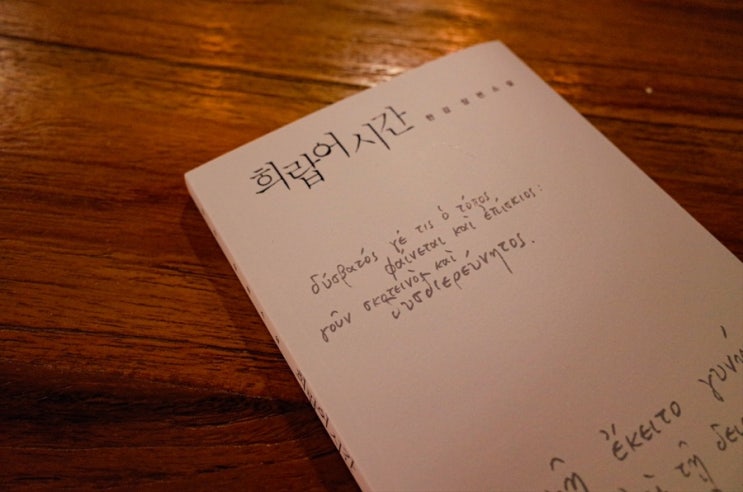 희랍어 시간 한강 장편소설
δύσβατός γέ τις ὁ τόπος
φαίνεται καὶ ἐπίσκιος:
γοῦν σκοτεινὸς καὶ
δυσδιερεύνητος.
ἔκειτο
희랍어 시간